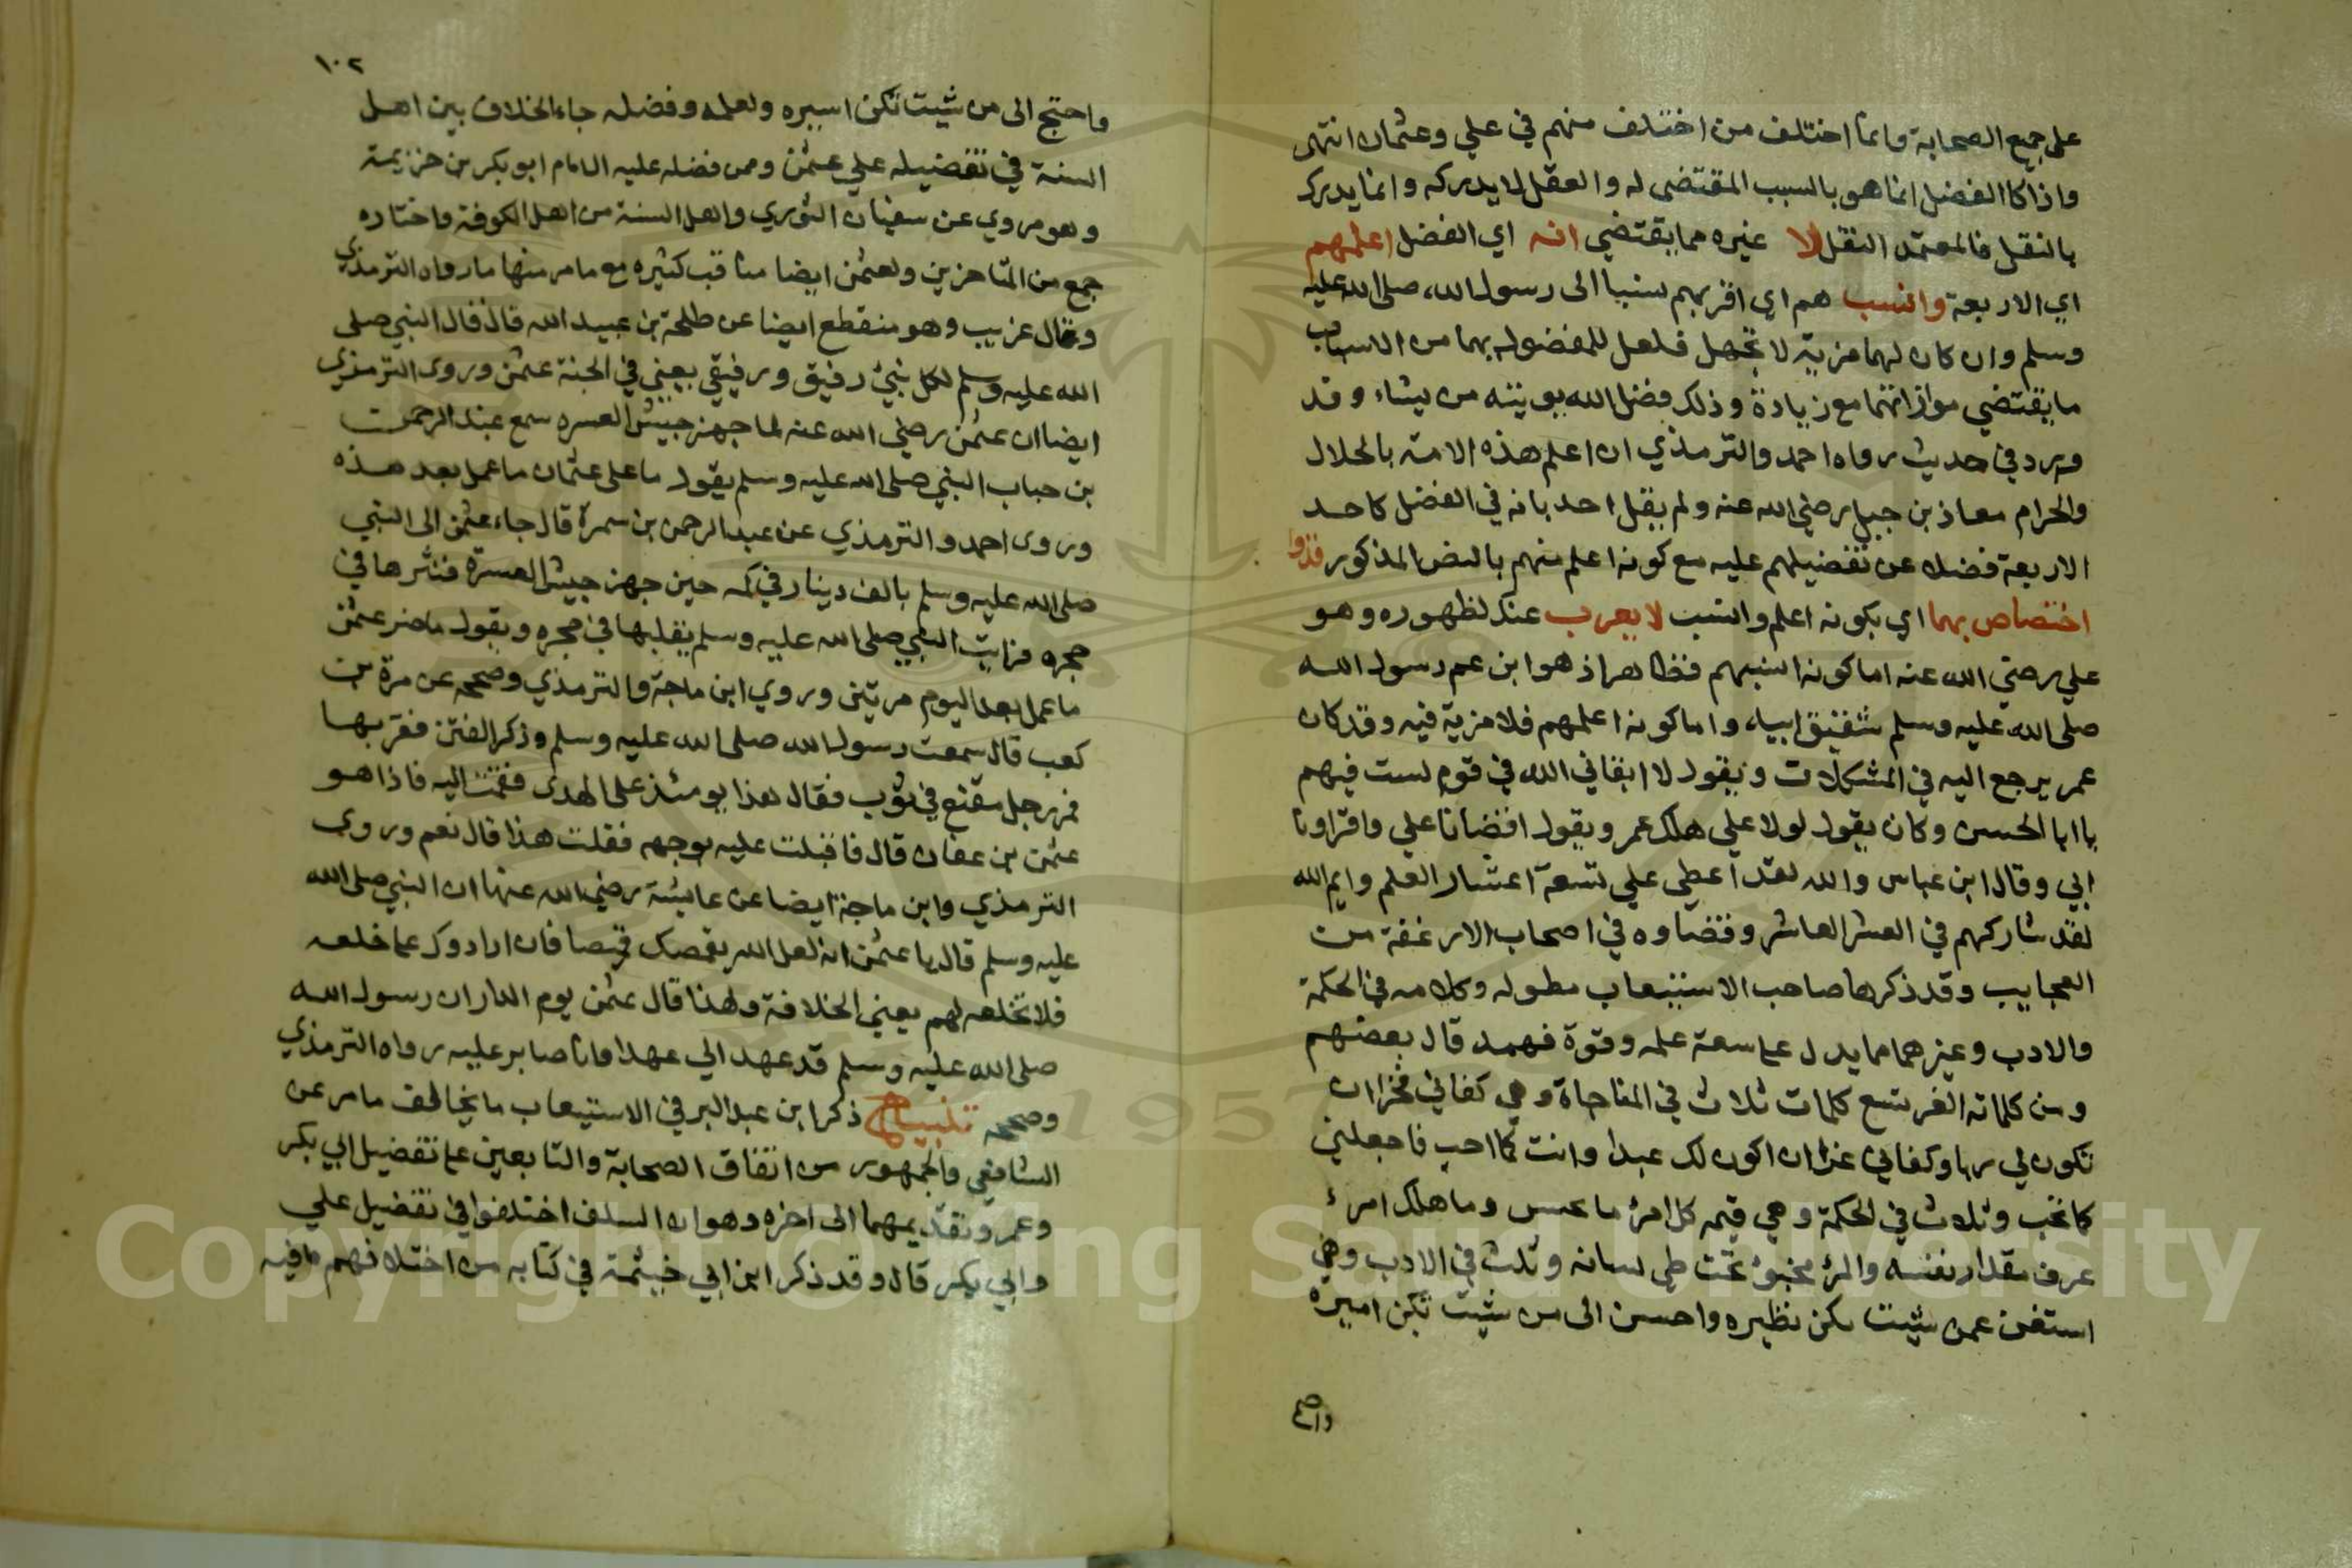 على جميع الصحابة وانما اختلف من اختلف منهم في علي وعثمان انتهى
واذا كا الفضل انما هو بالسبب المقتضى له والعقل لا يدركه وانما يدرك
بالنقل فالمعتمد النقل لا غيره مما يقتضي انه اي الفضل اعلمهم
اي الاربعة وانسب هم اي اقربهم نسبا الى رسول الله صلى الله عليه
وسلم وان كان لهما مزية لا تجهل فلعل للمفضول بهما من الاسباب
ما يقتضي موازاتهما مع زيادة وذلك فضل الله يوتيه من يشاء وقد
ورد في حديث رواه احمد والترمذي ان اعلم هذه الامة بالحلال
والحرام معاذ بن جبل رضي الله عنه ولم يقل احد بانه في الفضل كاحد
الاربعة فضلا عن تفضيلهم عليه مع كونه اعلم منهم بالنص المذكور فذوا
اختصاص بهما اي بكونه اعلم وانسب لا يعرب عنك لظهوره وهو
علي رضي الله عنه اما كونه انسبهم فظاهر اذ هو ابن عم رسول الله
صلى الله عليه وسلم شقيق ابيه واما كونه اعلمهم فلا مزية فيه وقد كان
عمر يرجع اليه في المشكلات ويقول لا ابقاني الله في قوم لست فيهم
يا ابا الحسن وكان يقول لولا علي هلك عمر ويقول اقضانا علي واقراونا
ابي وقال ابن عباس والله لقد اعطي علي تسعة اعشار العلم وايم الله
لقد شاركهم في العشر العاشر وقضاوه في اصحاب الارغفة من
العجايب وقد ذكرها صاحب الاستيعاب مطوله وكلامه في الحكمة
والادب وغيرهما مما يدل على سعة علمه وقوة فهمه قال بعضهم
ومن كلماته الغر تسع كلمات ثلاث في المناجاة وهي كفاني فخرا ان
تكون لي ربا وكفاني عزا ان اكون لك عبدا وانت كما احب فاجعلني
كما تحب وثلاث في الحكمة وهي قيمه كل امرئ ما يحسن وما هلك امرئ
عرف مقدار نفسه والمرئ مخبوئ تحت طي لسانه وثلث في الادب وهي
استغن عمن شيت تكن نظيره واحسن الى من شيت تكن اميره
١٠٢
واحتج الى من شيت تكن اسيره ولعلمه وفضله جاء الخلاف بين اهل
السنة في تفضيله على عثمن وممن فضله عليه الامام ابو بكر بن خزيمة
وهو مروي عن سفيان الثوري واهل السنة من اهل الكوفة واختاره
جمع من المتاخرين ولعثمن ايضا مناقب كثيره مع ما مر منها ما رواه الترمذي
وقال غريب وهو منقطع ايضا عن طلحة بن عبيد الله قال قال النبي صلى
الله عليه وسلم لكل نبئ رفيق ورفيقي يعني في الجنة عثمن وروى الترمذي
ايضا ان عثمن رضي الله عنه لما جهز جيش العسره سمع عبد الرحمن
بن خباب النبي صلى الله عليه وسلم يقول ما على عثمان ما عمل بعد هذه
وروى احمد والترمذي عن عبد الرحمن بن سمرة قال جاء عثمن الى النبي
صلى الله عليه وسلم بالف دينار في كمه حين جهز جيش العسرة فنثرها في
حجره فرايت النبي صلى الله عليه وسلم يقلبها في حجره ويقول ما ضر عثمن
ما عمل بعد اليوم مرتين وروي ابن ماجة والترمذي وصححه عن مرة بن
كعب قال سمعت رسول الله صلى الله عليه وسلم وذكر الفتن فقربها
فمر رجل مقنع في ثوب فقال هذا يومئذ على الهدى فقمت اليه فاذا هو
عثمن بن عفان قال فاقبلت عليه بوجهه فقلت هذا قال نعم وروي
الترمذي وابن ماجة ايضا عن عايشة رضي الله عنها ان النبي صلى الله
عليه وسلم قال يا عثمن انه لعل الله يقمصك قميصا فان ارادوك على خلعه
فلا تخلعه لهم يعني الخلافة ولهذا قال عثمن يوم الدار ان رسول الله
صلى الله عليه وسلم قد عهد الي عهدا فانا صابر عليه رواه الترمذي
وصححه تنبيه ذكر ابن عبد البر في الاستيعاب ما يخالف ما مر عن
الشافعي والجمهور من اتفاق الصحابة والتابعين على تفضيل ابي بكر
وعمر وتقديمهما الى اخره وهو ان السلف اختلفوا في تفضيل علي
وابي بكر قال وقد ذكر ابن ابي خيثمة في كتابه من اختلافهم ما فيه
Copyright © King Saud University
1957